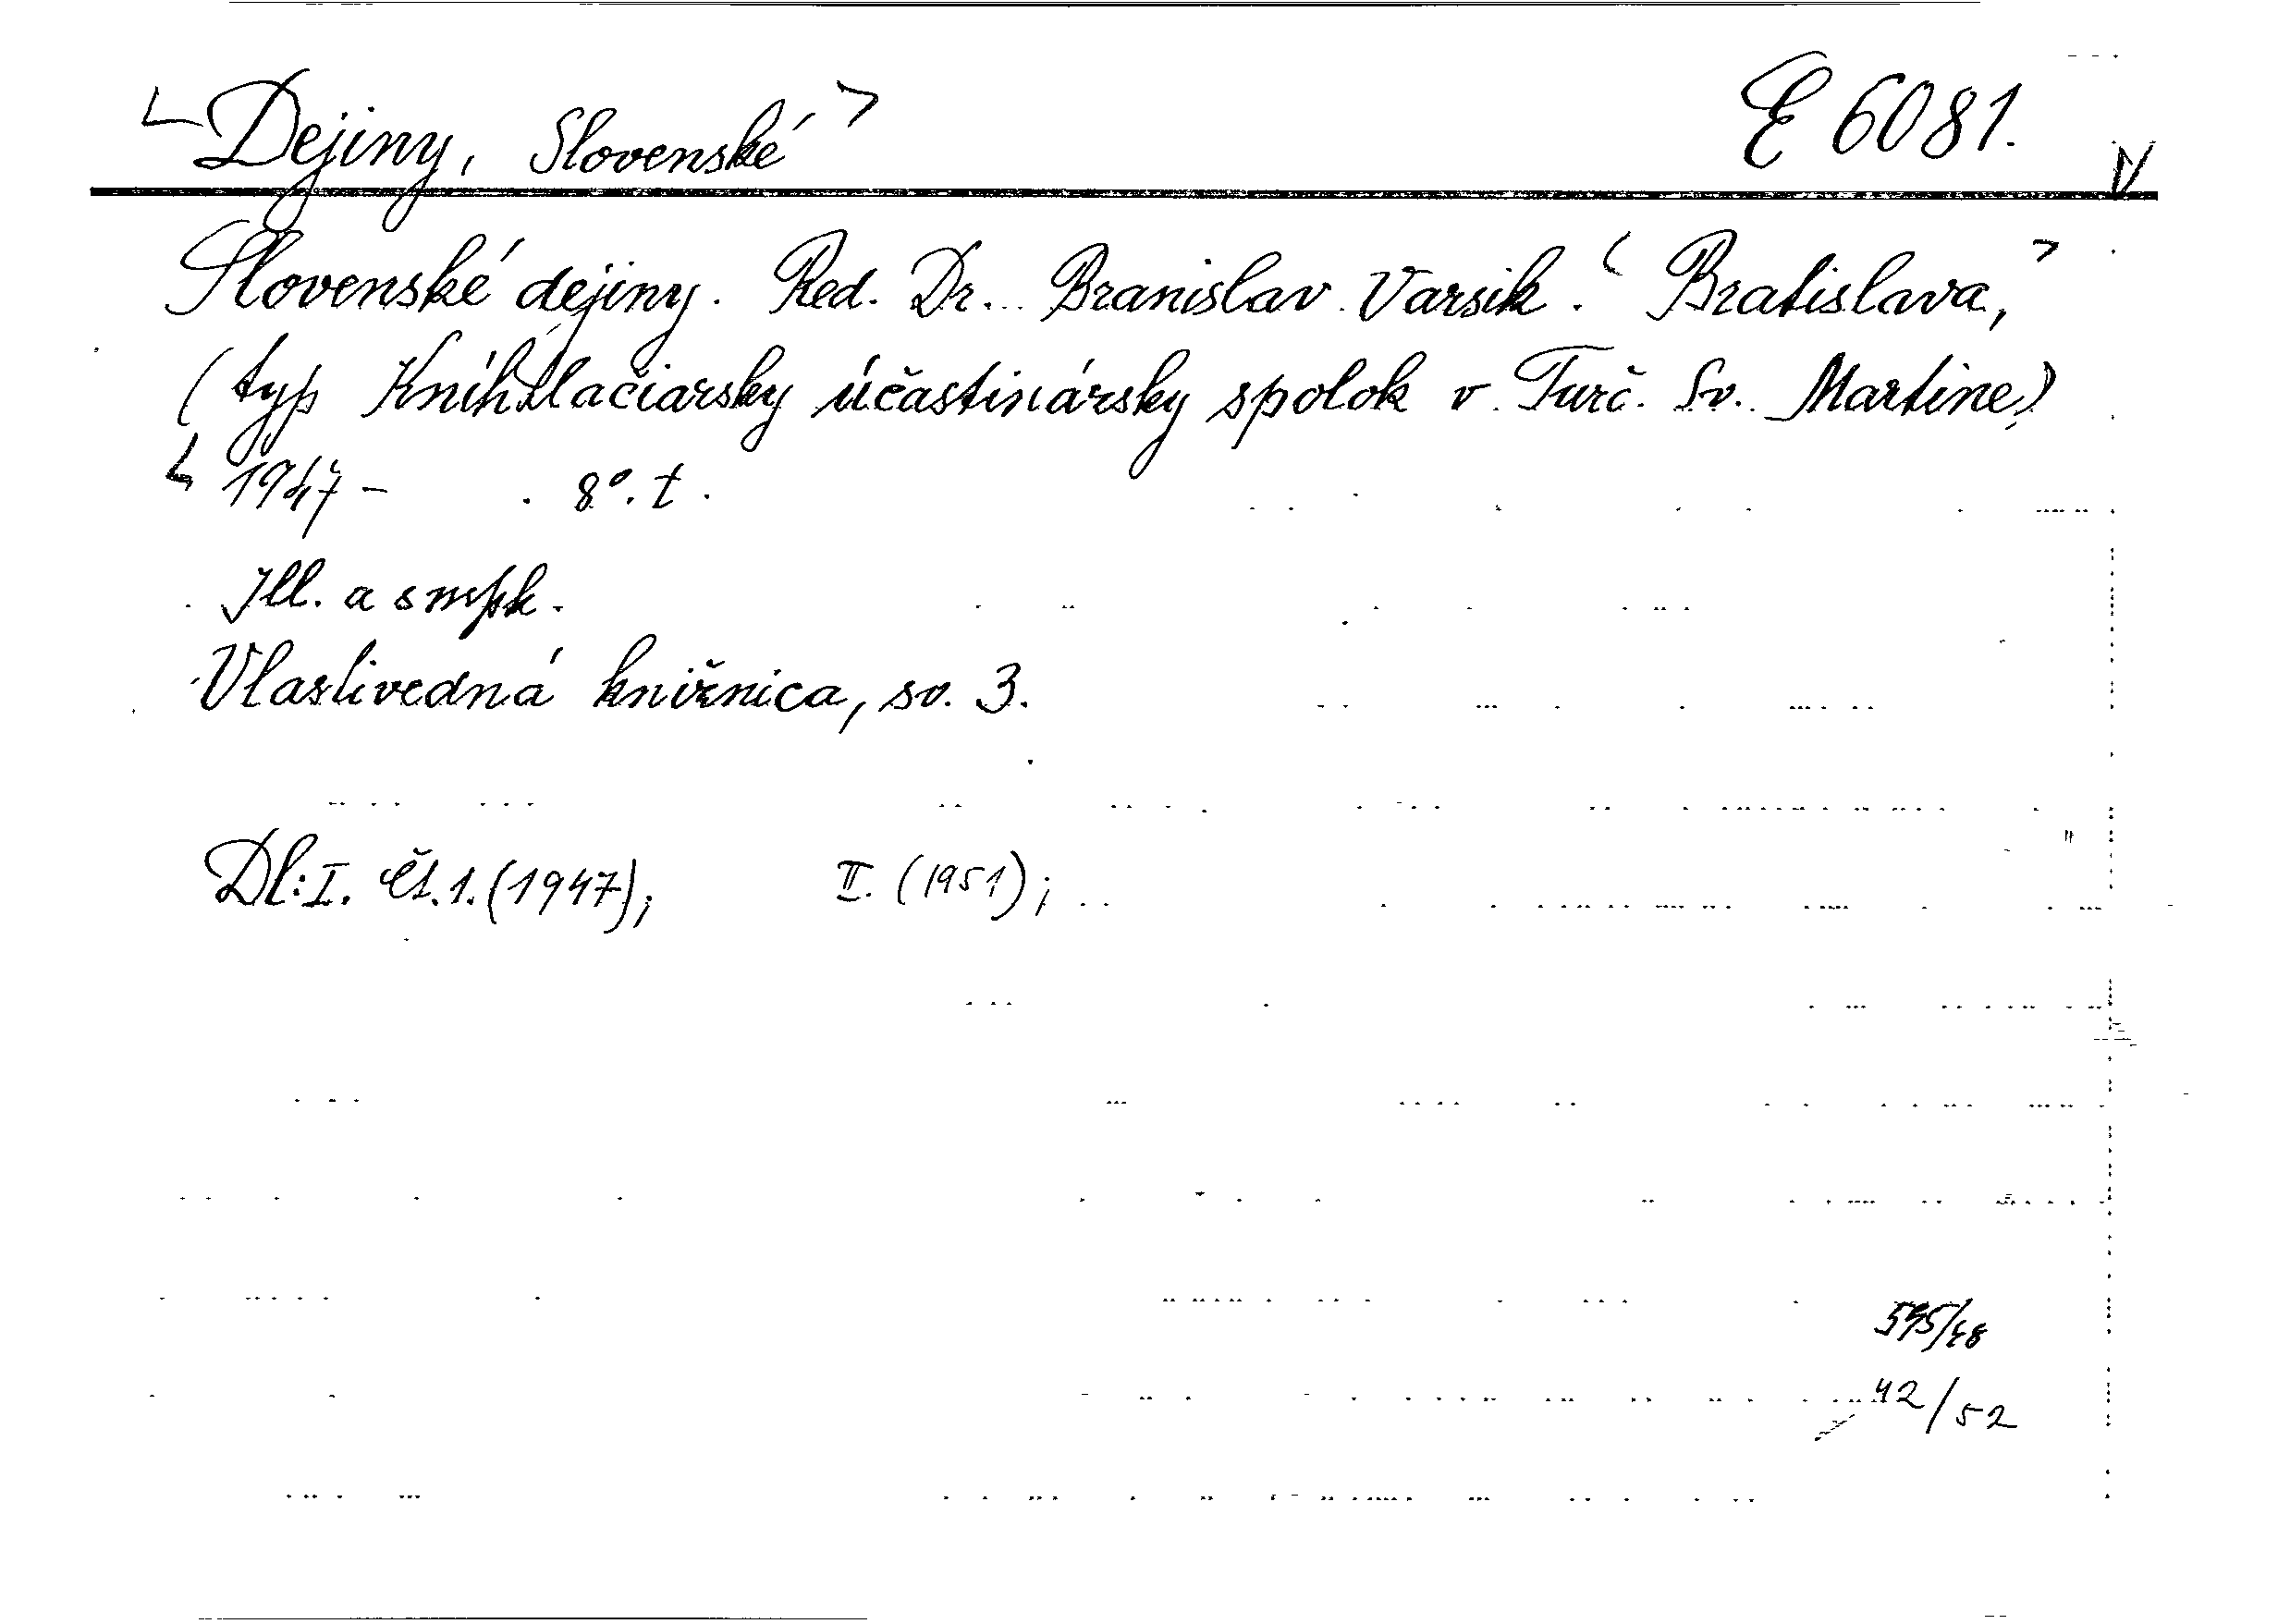 <Dejiny, Slovenské> E 6081.
Slovenské dejiny. Red. Dr. Branislav Varsik. <Bratislava,>
(typ Kníhtlačiarsky účastinársky spolok v Turč. Sv. Martine)
< 1947- . 8°. t.
Ill. a s mpk.
Vlastivedná knižnica, sv. 3.
Dl: I. čs. 1. (1947); II. (1951);
42/52